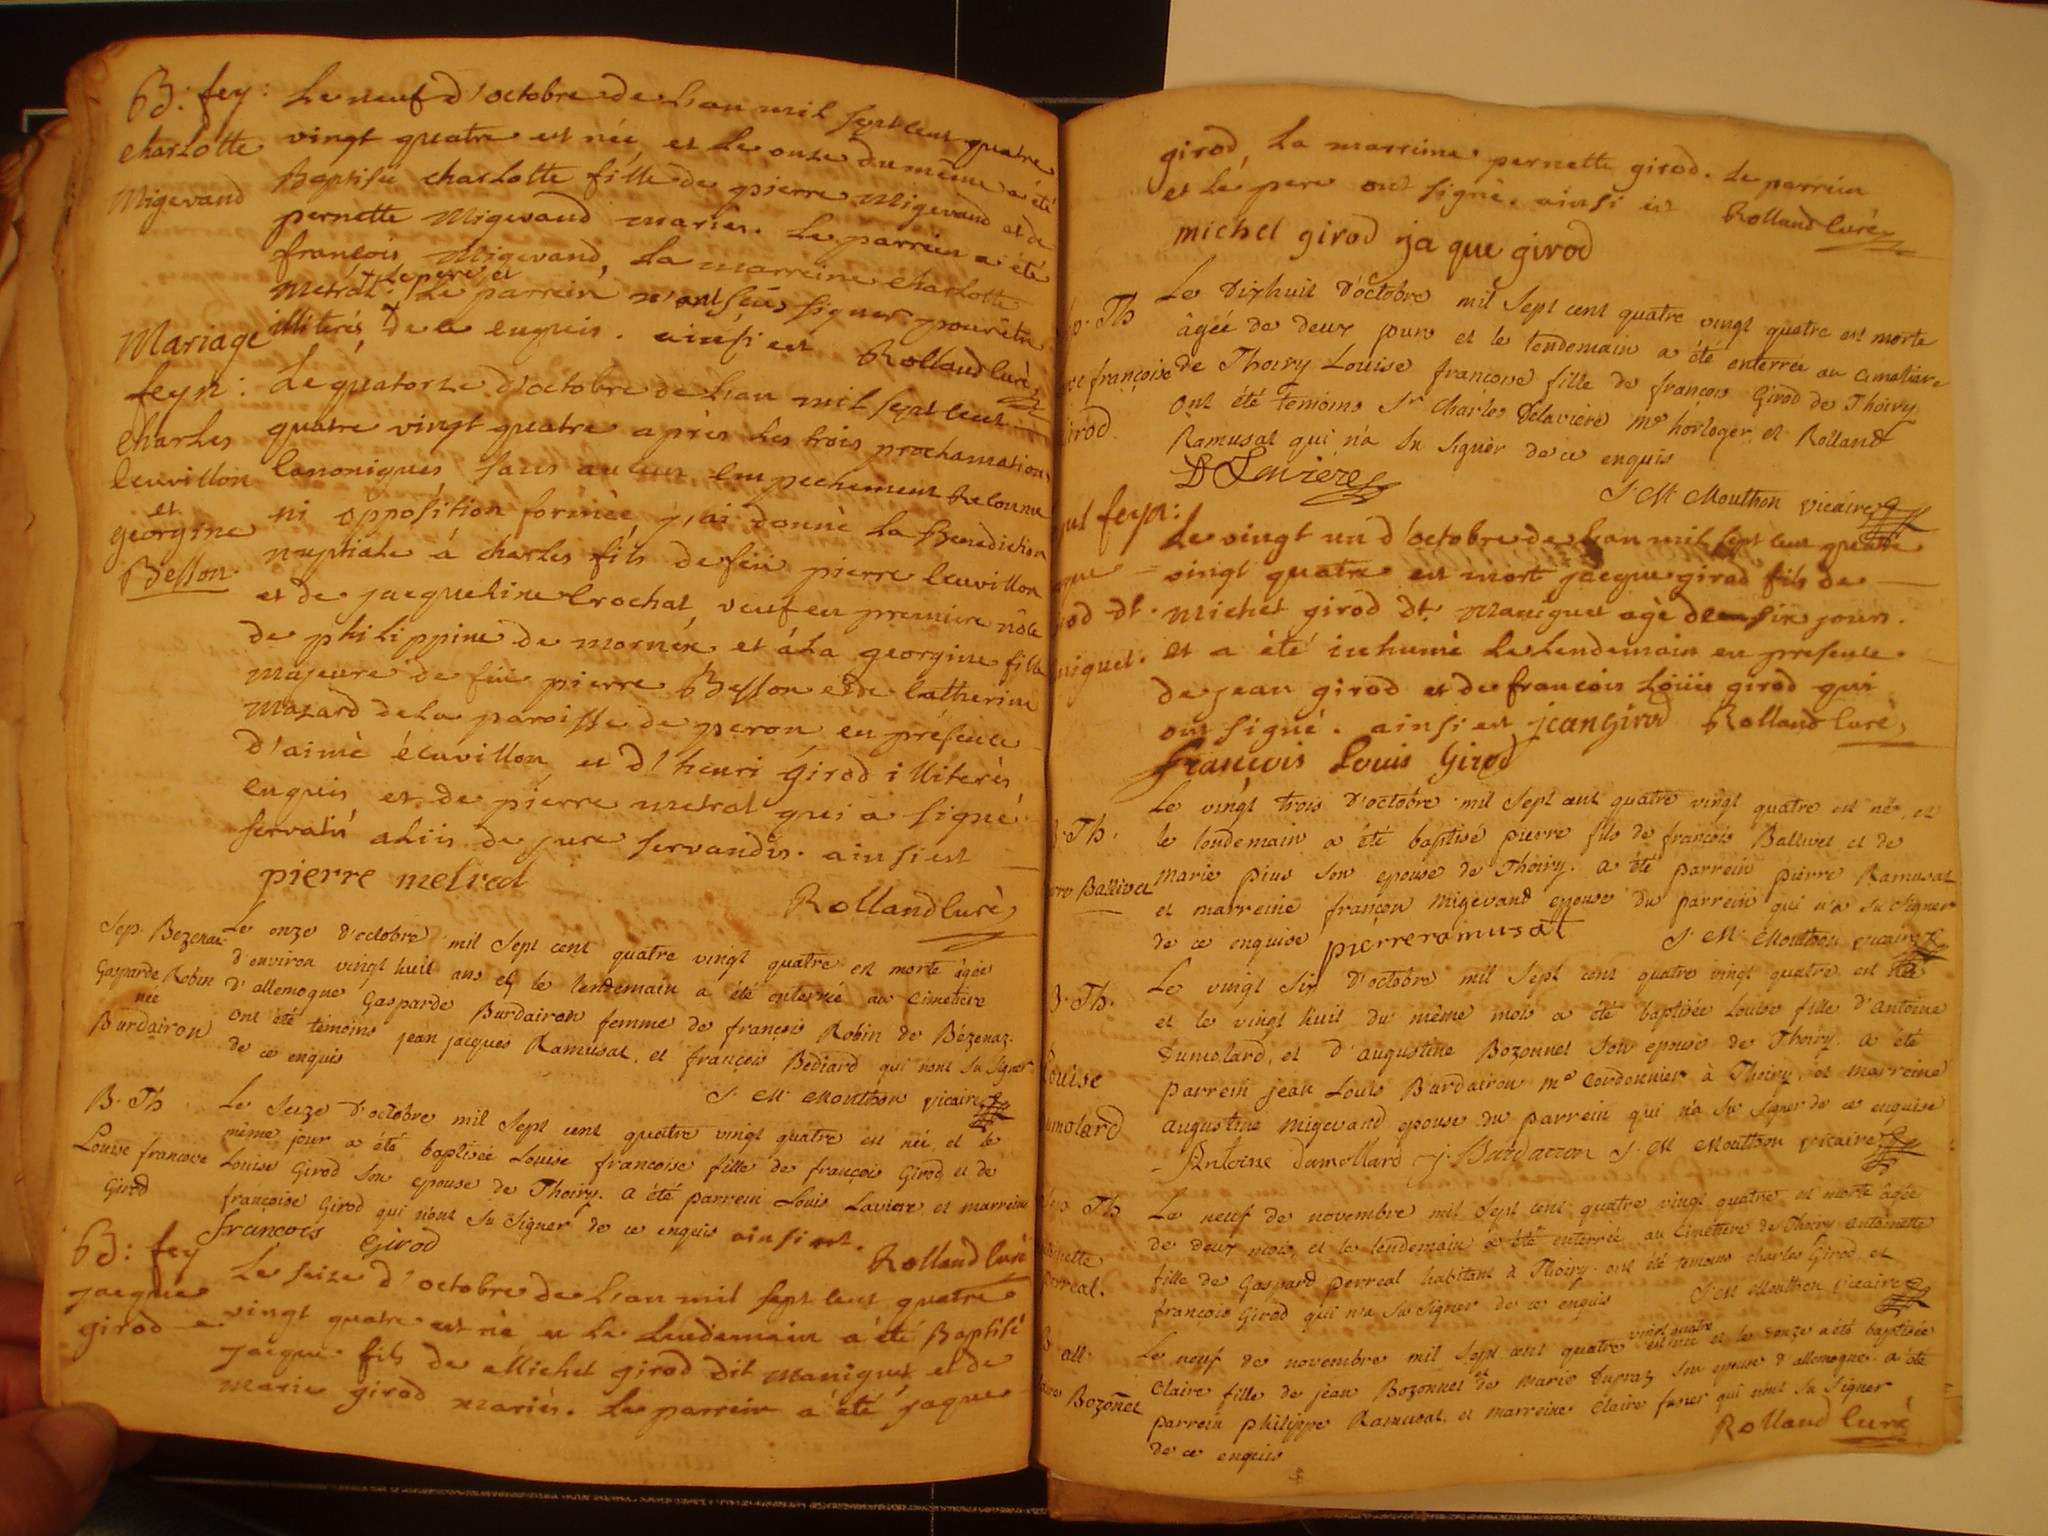 B: fey: Le neuf d'octobre de L'an mil sept cent quatre
charlotte vingt quatre est née, et Le onze du même a été
Migevand Baptisée charlotte fille de pierre Migevand et de
pernette Migevand mariés. Le parrein a été
françois Migevand, La marreine charlotte
metral: Le pere et Le parrein n'ont sçus signer pour être
illiterés, de ce enquis. ainsi est Rolland Curé
Mariage
feyn: Le quatorze d'octobre de L'an mil sept cent
charles quatre vingt quatre après Les trois proclamations
Ecuvillon Canoniques sans aucun Empechement reconnu
et
georgine ni opposition formée, j'ai donné La Benediction
Besson. nuptiale á charles fils de feu pierre Ecuvillon
et de jacqueline Crochat, veuf en premiere nôce
de philippine de mornex et á La georgine fille
majeure de feu pierre Besson et de Catherine
Mazard de La paroisse de peron en présence
d'aimé écuvillon et d'henri Girod illiterés
enquis et de pierre metral qui a signé.
servatis aliis de jure servandis. ainsi est
pierre metral
Rolland Curé
Sep. Bezenas: Le onze d'octobre mil sept cent quatre vingt quatre est morte âgée
Gasparde Robin d'environ vingt huit ans et le lendemain a été enterrée au cimetiere
née d'allemogne Gasparde Burdairon femme de françois Robin de Bézenaz.
Burdairon ont été témoins jean jacques Ramusat, et françois Bediard qui n'ont su signer
de ce enquis
J. M. Mouthon vicaire
B. Th Le seize d'octobre mil sept cent quatre vingt quatre est née et le
Louise francoise même jour a été baptisée Louise francoise fille de françois Girod et de
Girod Louise Girod son epouse de Thoiry. a été parrein Louis Laviere et marreine
françoise Girod qui n'ont su signer de ce enquis ainsi est.
francois Girod
Rolland Curé
B: fey Le seize d'octobre de L'an mil sept cent quatre
jacque vingt quatre est né et Le Lendemain a été Baptisé
girod jacque fils de Michel girod dit Maniguet et de
marie girod mariés. Le parrein a été jaque
girod, La marreine pernette girod. Le parrein
et Le pere ont signé. ainsi est Rolland Curé
michel girod ja que girod
Th Le Dixhuit d'octobre mil sept cent quatre vingt quatre est morte
âgée de deux jours et le lendemain a été enterrée au cimetiere
françoise de Thoiry Louise francoise fille de françois Girod de Thoiry
irod ont été temoins Sr Charles Delavière me horloger, et Rolland
Ramusat qui n'a su signer de ce enquis
J. M. Mouthon vicaire
feyn:
Le vingt un d'octobre de L'an mil sept cent quatre
vingt quatre est mort jacque girod fils de
od dt. Michel girod dt. Maniguet agé de six jours.
niguet. et a été inhumé Le Lendemain en presence
de jean girod et de françois Loüis girod qui
ont signé. ainsi est jean Girod Rolland Curé
françois Louis Girod
Le vingt trois d'octobre mil sept cent quatre vingt quatre est né, et
B. Th. le lendemain a été baptisé pierre fils de françois Ballivet et de
marie pius son epouse de Thoiry. a été parrein pierre Ramusat
Ballivet et marreine françon Migevand epouse du parrein qui n'a su signer
de ce enquise pierre ramusat J. M. Mouthon vicaire
Le vingt six d'octobre mil sept cent quatre vingt quatre est née
B. Th. et le vingt huit du même mois a été baptisée Louise fille d'antoine
Dumolard, et d'augustine Bozonnet son epouse de Thoiry. a été
Louise parrein jean Louis Burdairon me cordonnier à Thoiry, et marreine
umolard augustine Migevand epouse du parrein qui n'a su signer de ce enquise
Antoine dumollard J. Burdairon J. M. Mouthon vicaire
Th Le neuf de novembre mil sept cent quatre vingt quatre est morte âgée
de deux mois, et le lendemain a été enterrée au cimetiere de Thoiry antoinette
fille de Gaspard perreal habitant à Thoiry. ont été temoins charles Girod et
erreal. francois Girod qui n'a su signer de ce enquis J. M. Mouthon vicaire
all. Le neuf de novembre mil sept cent quatre vingt quatre est née et le onze a été baptisée
Claire fille de jean Bozonnet et de Marie Dupraz son epouse d'allemogne. a été
Bozonet parrein philippe Ramusat, et marreine Claire fuser qui n'ont su signer
de ce enquis
Rolland Curé